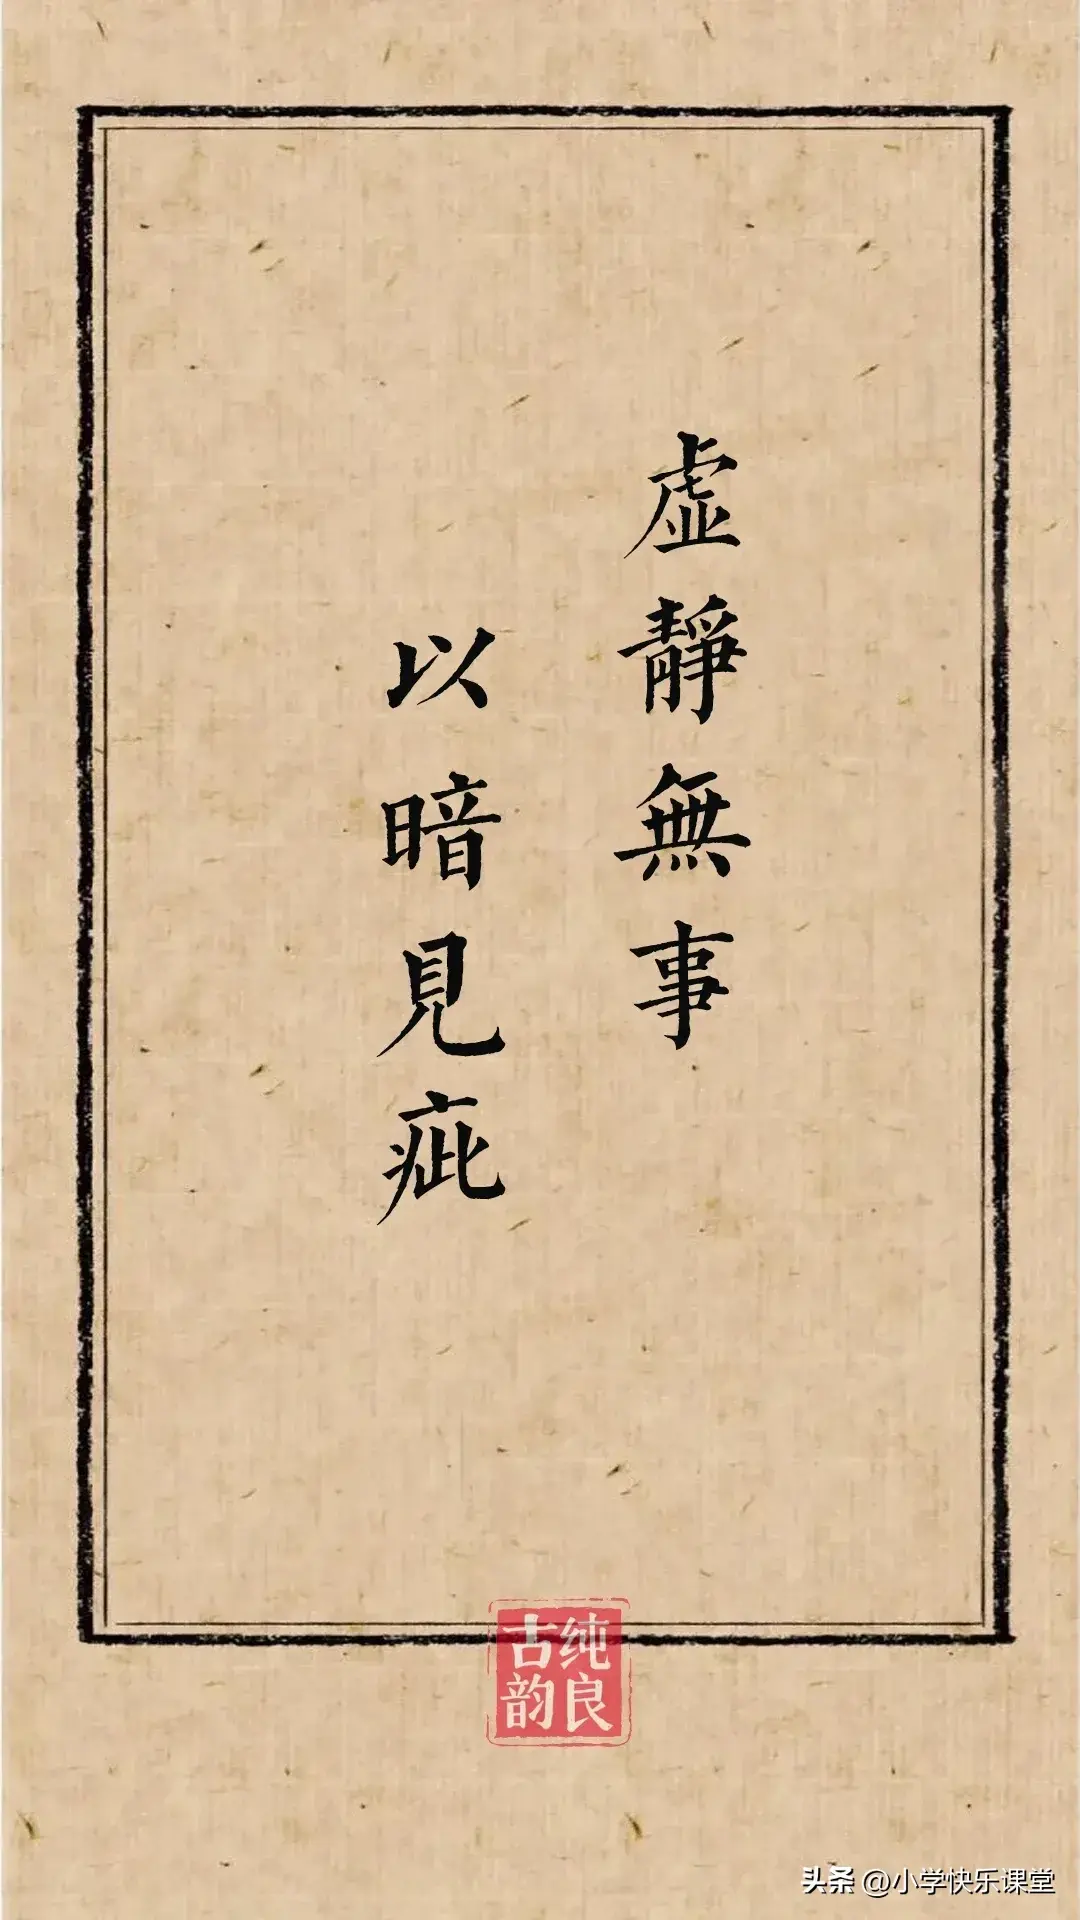 虛靜無事
以暗見疵
纯良
古韵
头条 @小学快乐课堂